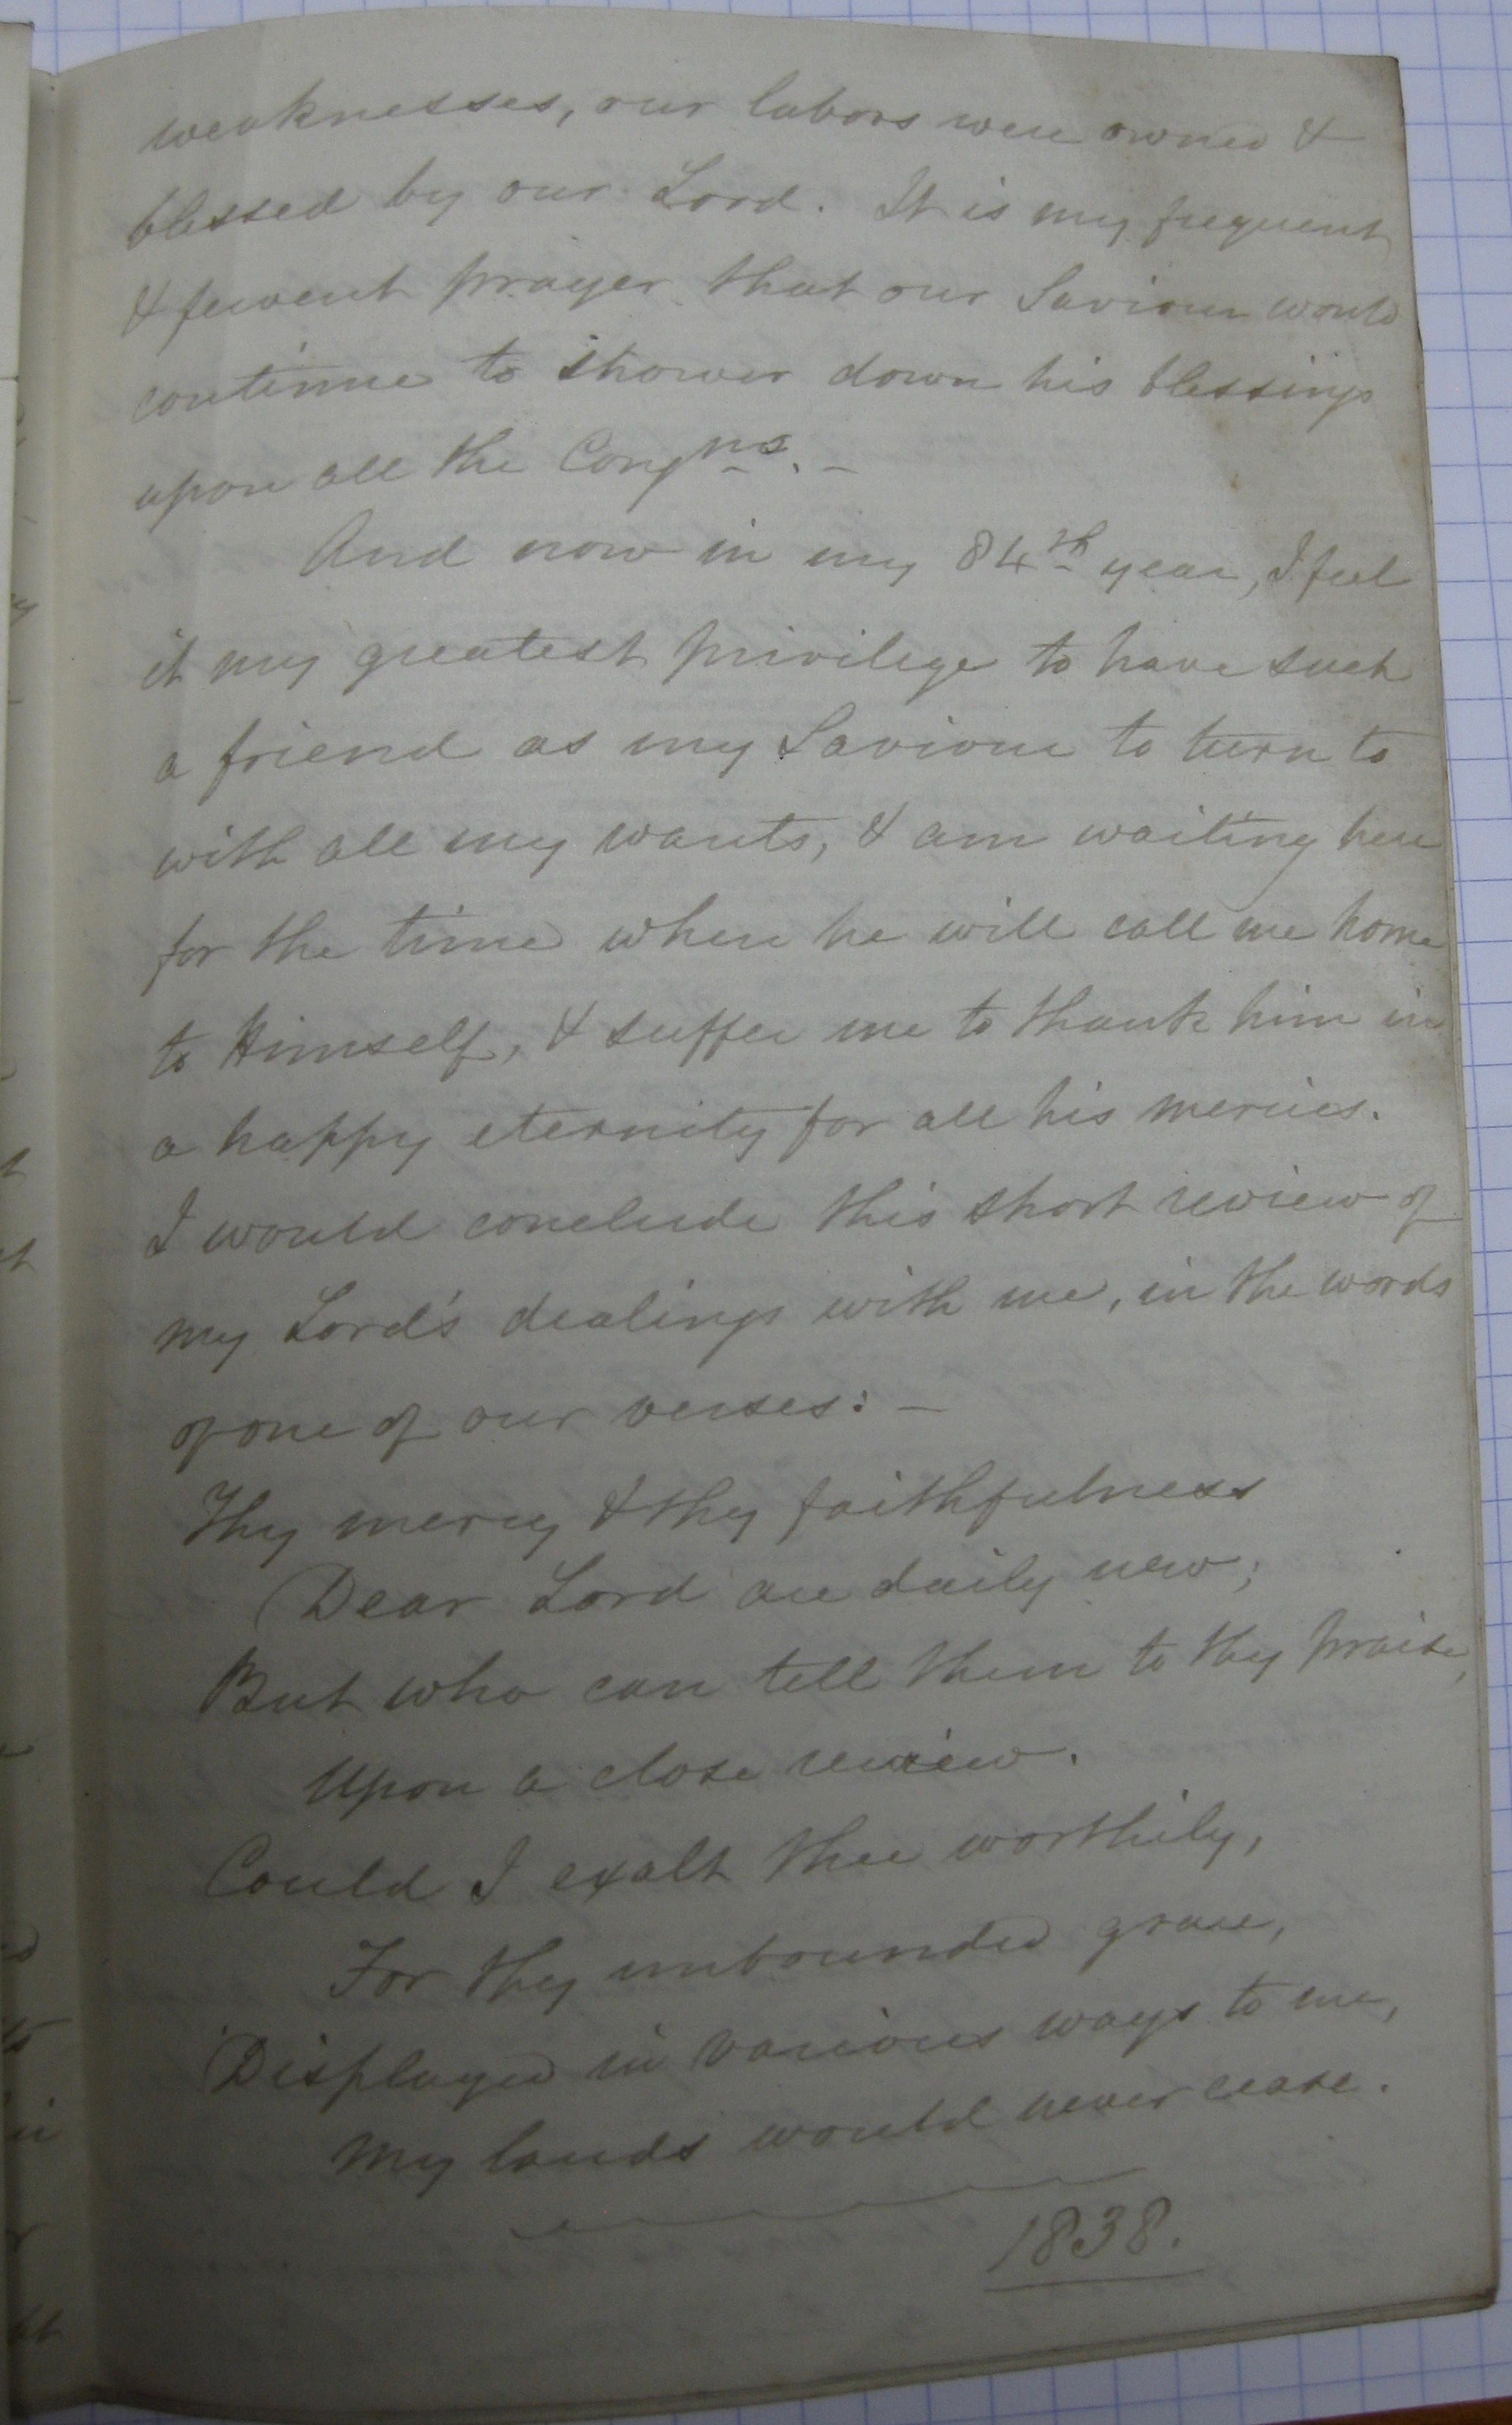 weaknesses, our labors were owned &
blessed by our Lord. It is my frequent
& fervent prayer that our Saviour would
continue to shower down his blessings
upon all the Congns. –
And now in my 84th year, I feel
it my greatest privilege to have such
a friend as my Saviour to turn to
with all my wants, & am waiting here
for the time when he will call me home
to Himself, & suffer me to thank him in
a happy eternity for all his mercies.
I would conclude this short review of
my Lord's dealings with me, in the words
of one of our verses: –
Thy mercy & thy faithfulness
Dear Lord are daily new;
But who can tell them to thy praise,
Upon a close review.
Could I exalt thee worthily,
For thy unbounded grace,
Displayed in various ways to me,
My lauds would never cease.
1838.